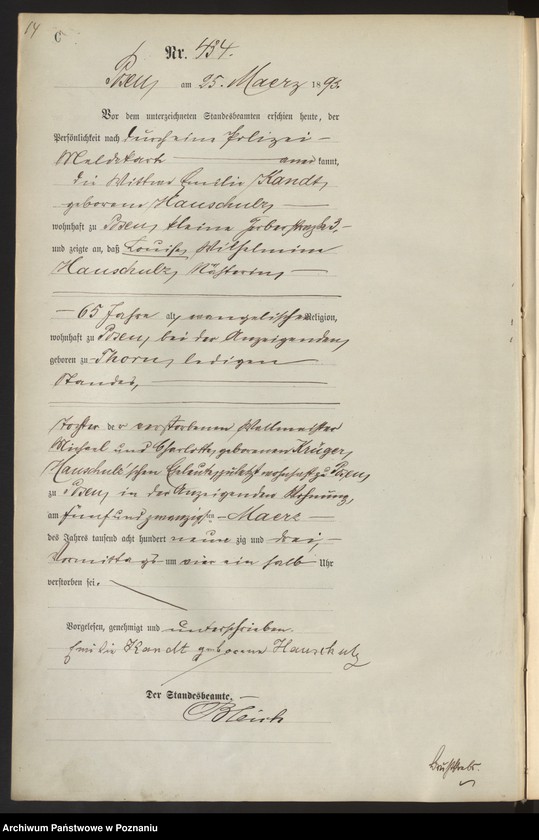 14
C
Nr. 454.
Posen, am 25. Maerz 1893.
Vor dem unterzeichneten Standesbeamten erschien heute, der
Persönlichkeit nach durch eine Polizei-
Meldekarte — aner kannt,
die Wittwe Emilie Kandt,
geborene Hauschulz, —
wohnhaft zu Posen, kleine Gerberstraße 3. —
und zeigte an, daß Louise, Wilhelmine
Hauschulz, Nähterin, —
— 65 Jahre alt, evangelischer Religion,
wohnhaft zu Posen, bei der Anzeigenden,
geboren zu Thorn, ledigen
Standes, —
Tochter der verstorbenen Wallmeister
Michael und Charlotte, geborenen Krüger,
Hauschulz'schen Eheleute, zuletzt wohnhaft zu Posen,
zu Posen, in der Anzeigenden Wohnung,
am fünfundzwanzigsten Maerz —
des Jahres tausend acht hundert neun zig und drei, —
Vormittags um vier ein halb Uhr
verstorben sei.
Vorgelesen, genehmigt und unterschrieben.
Emilie Kandt geborene Hauschulz
Der Standesbeamte, —
Bleich
Archiwum Państwowe w Poznaniu